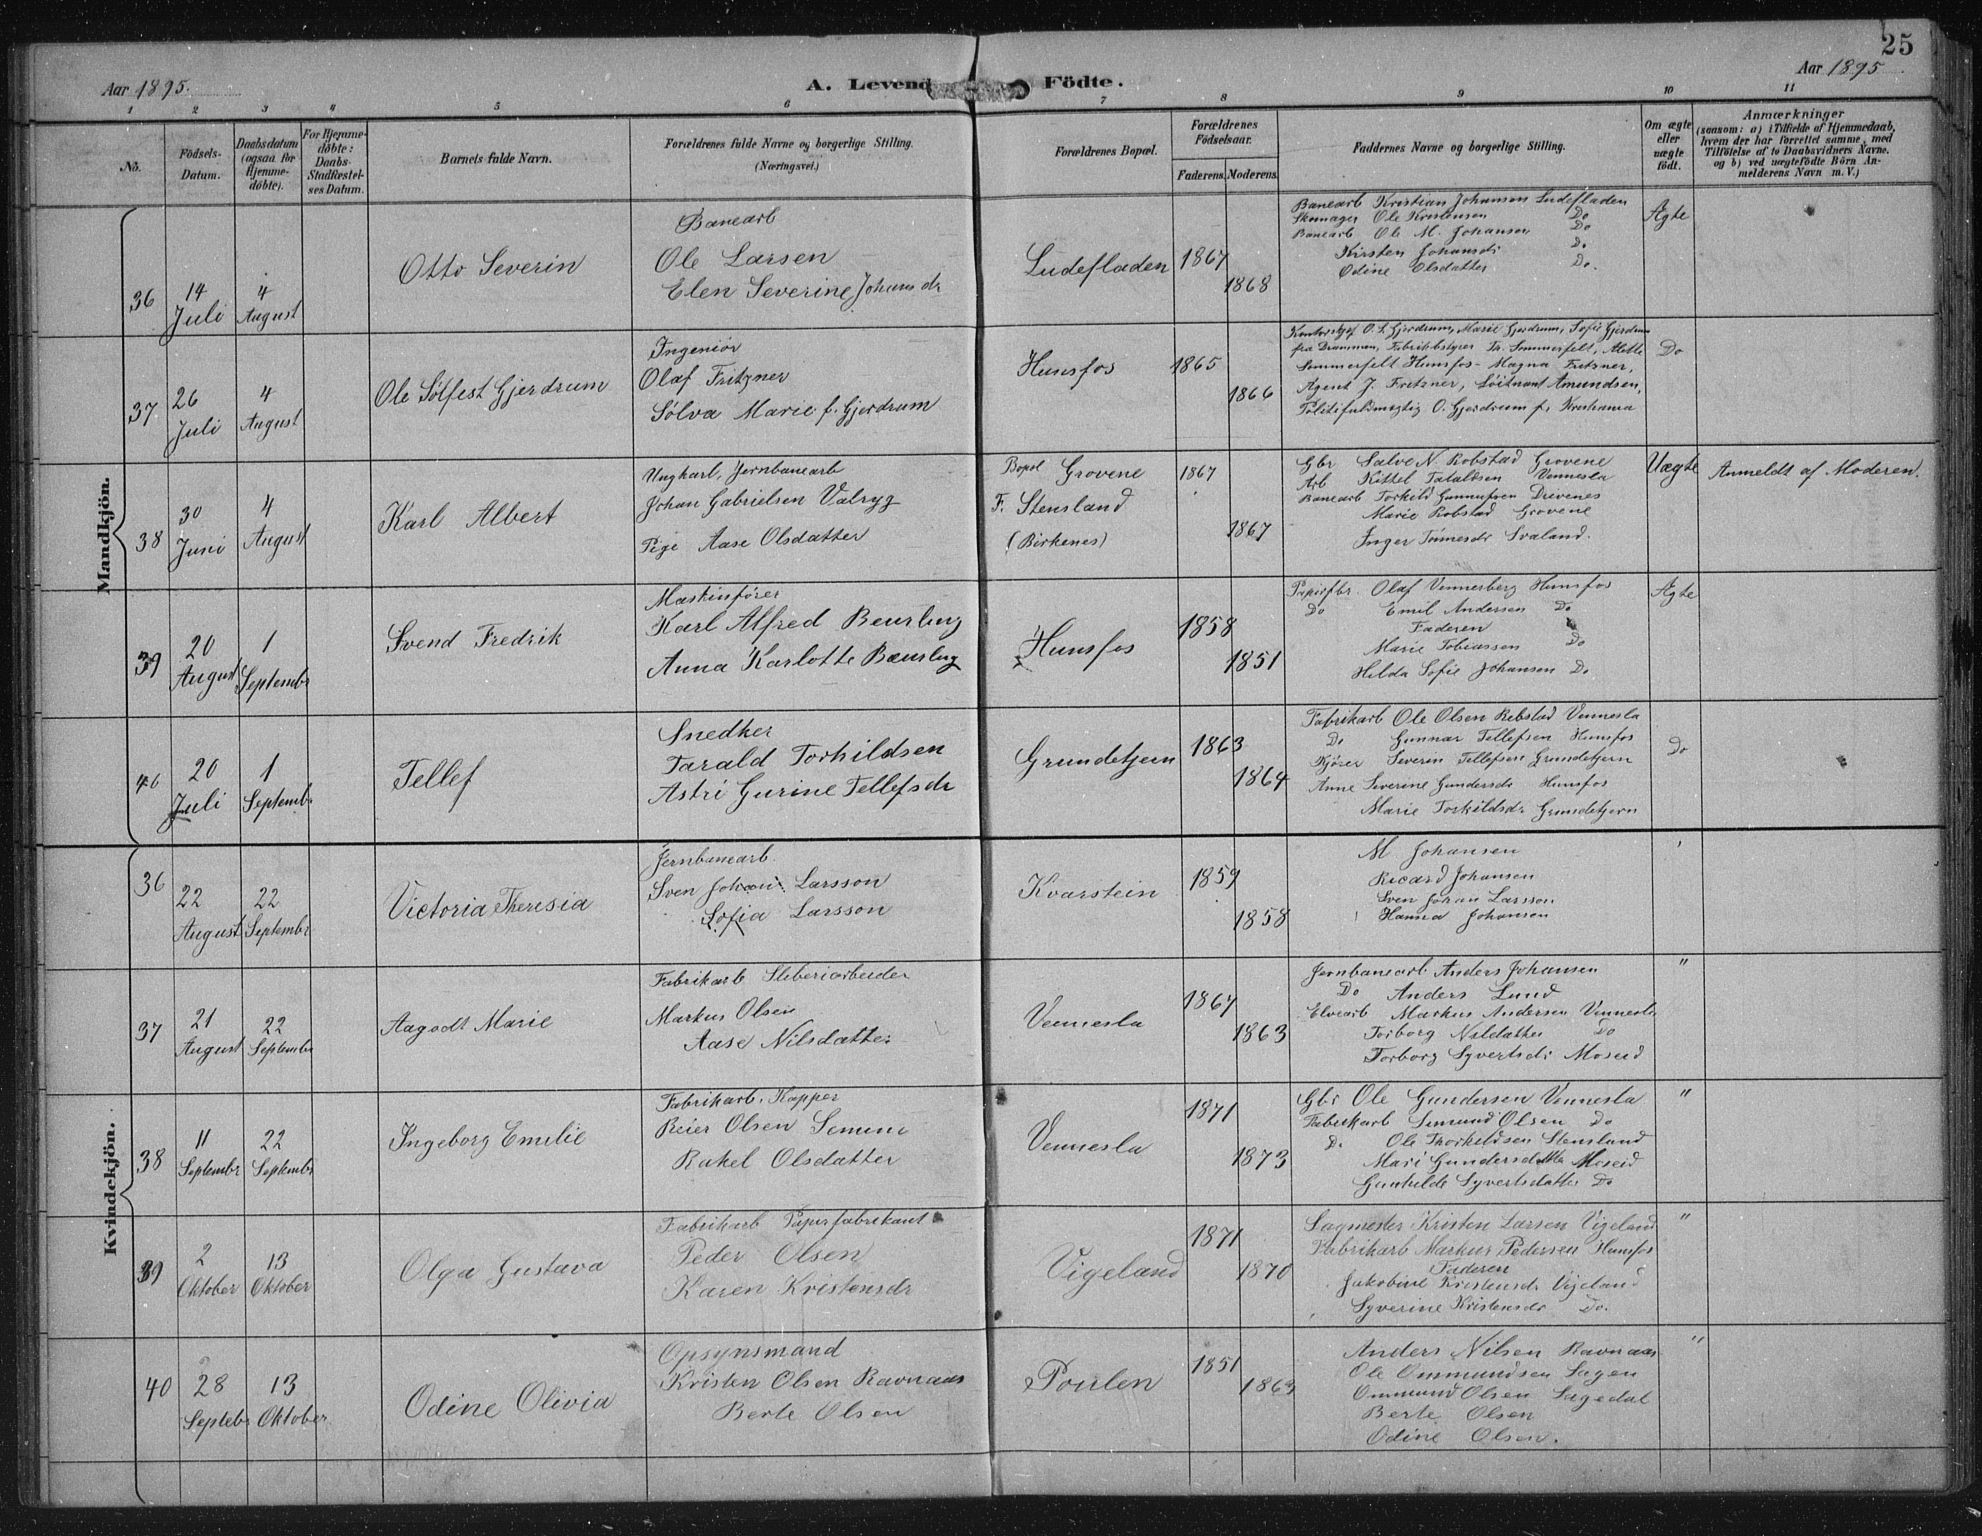 25
Aar 1895.
A. Levende Födte.
Aar 1895
1 2 3 4 5 6 7 8 9 10 11
No.
Födsels-Datum.
Daabsdatum (ogsaa for Hjemme-döbte).
For Hjemme-döbte: Daabs-Stadfæstel-ses Datum.
Barnets fulde Navn.
Forældrenes fulde Navne og borgerlige Stilling.
(Næringsvei.)
Forældrenes Bopæl.
Forældrenes Födselsaar.
Faderens. Moderens.
Faddernes Navne og borgerlige Stilling.
Om ægte eller uægte födt.
Anmærkninger
(saasom: a) i Tilfælde af Hjemmedaab, hvem der har forrettet samme, med Tilföielse af to Daabsvidners Navne. og b) ved uægtefödte Börn An-melderens Navn m. V.)
Mandkjön.
36
14 Juli
4 August
Otto Severin
Banearb
Ole Larsen
Elen Severine Johansdr
Ludefladen
1867
1868
Banearb Kristian Johansen Ludefladen
Skomager Ole Kristensen Do
Banearb Ole M. Johansen Do
Kirsten Johansdr Do
Odine Olsdatter Do.
Ægte
37
26 Juli
4 August
Ole Sølfest Gjerdrum
Ingeniør
Olaf Fritzner
Sølva Marie f. Gjerdrum
Hunsfos
1865
1866
O. S. Gjerdrum, Marie Gjerdrum, Sofie Gjerdrum
fra Drammen, Fabrikbstyrer Fr. Sommerfelt, Alette
Sommerfelt Hunsfos - Magna Fritzner,
Agent J. Fritzner, Løitnant Amundsen,
Politifuldmægtig O. Gjerdrum fr. Kristiania
Do
38
30 Juni
4 August
Karl Albert
Ungkarl, Jernbanearb
Johan Gabrielsen Valryg
Pige Aase Olsdatter
Bopæl Grovene
F. Stensland
(Birkenes)
1867
1867
Gbr Salve N Robstad Grovene
Arb Kittel Taraldsen Vennesla
Banearb Torkild Gunnufsen Drivenes
Marie Robstad Grovene
Inger Tømesdr Svaland.
Uægte
Anmeldt af Moderen.
39
20 August
1 Septembr
Svend Fredrik
Maskinfører
Karl Alfred Beurling
Anna Karlotte Beurling
Hunsfos
1858
1851
Papirfbr. Olaf Vennerberg Hunsfos
Do Emil Andersen Do
Faderen
Marie Tobiassen Do
Hilda Sofie Johansen Do
Ægte
40
20 Juli
1 Septembr
Tellef
Snedker
Tarald Torkildsen
Astri Gurine Tellefsdr
Grundetjern
1863
1864
Fabrikarb Ole Olsen Rebstad Vennesla
Do Gunnar Tellefsen Hunsfos
Kjører Severin Tellefsen Grundetjern
Anne Severine Gundersdr Hunsfos
Marie Torkildsdr. Grundetjern
Do
Kvindekjön.
36
22 August
22 Septembr
Victoria Theresia
Jernbanearb.
Sven Johan Larsson
Sofia Larsson
Kvarstein
1859
1858
M Johansen
Ricard Johansen
Sven Johan Larsson
Hanna Johansen
37
21 August
22 Septembr
Aagodt Marie
Fabrikarb Sliberiarbeider
Markus Olsen
Aase Nilsdatter
Vennesla
1867
1863
Jernbanearb Anders Johansen
Do Anders Lund
Elvearb Markus Andersen Vennesla
Torborg Nilsdatter Do
Torborg Syvertsdr Moseid
"
38
11 Septembr
22 Septembr
Ingeborg Emilie
Fabrikarb. Kapper
Reier Olsen
Rakel Olsdatter
Vennesla
1871
1873
Gbr Ole Gundersen Vennesla
Fabrikarb Simund Olsen Do
Do Ole Thorkildsen Stensland
Mari Gundersdatter Moseid
Gunhilde Syvertsdatter Do
"
39
2 Oktober
13 Oktober
Olga Gustava
Fabrikarb Papirfabrikant
Peder Olsen
Karen Kristensdr
Vigeland
1871
1870
Sagmester Kristen Larsen Vigeland
Fabrikarb Markus Pedersen Hunsfos
Faderen
Jakobine Kristensdr Vigeland
Syverine Kristensdr Do.
"
40
28 Septebr
13 Oktober
Odine Olivia
Opsynsmand
Kristen Olsen Ravnaas
Berte Olsen
Poulen
1851
1863
Anders Nilsen Ravnaas
Ole Ommundsen Sagen
Ommund Olsen Sagedal
Berte Olsen
Odine Olsen.
"